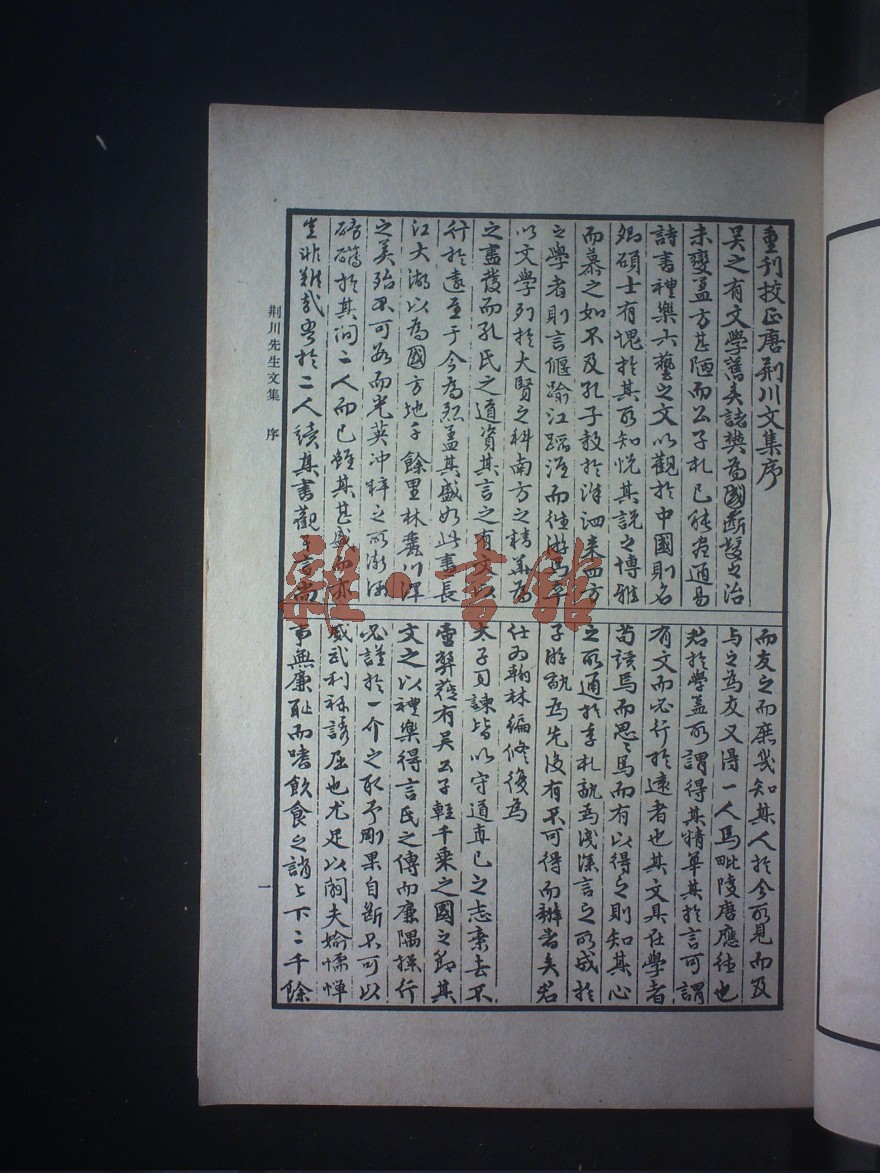 重刊校正唐荊川文集序
吳之有文學舊矣誌興為國斷髮之治
未變蓋方甚陋而公子札已能盡通易
詩書禮樂六藝之文以觀於中國則名
卿碩士有愧於其所知悅其說之博雅
而慕之如不及孔子教於洙泗來四方
之學者則言偃踰江蹈淮而往游焉卒
以文學列於大賢之科南方之精華為
之盡發而孔氏之道資其言之有文以
行於遠至于今為烈蓋其盛如此晝長
江大湖以為國方地千餘里林麓川澤
之美殆不可數而光英沖粹之所漸涵
磅礴於其間二人而已雖其甚盛而亦
豈非難哉吾於二人讀其書觀其言尚
而友之而庶幾知其人於今所見而及
與之為友又得一人焉毗陵唐應德也
君於學蓋所謂得其精華其於言可謂
有文而必行於遠者也其文具在學者
苟讀焉而思思焉而有以得之則知其心
之所通於季札孰為淺深言之所成於
子游孰為先後有不可得而辨者矣君
仕為翰林編修後為
太子司諫皆以守道直己之志棄去不
啻弊蓰有吳公子輕千乘之國之節其
文之以禮樂得言氏之傳而廉隅操行
必謹於一介之取予剛果自斷不可以
威武利祿誘屈也尤足以闢夫媮懦憚
事無廉恥而嗜飲食之誚上下二千餘
荆川先生文集 序
一
雜·書館